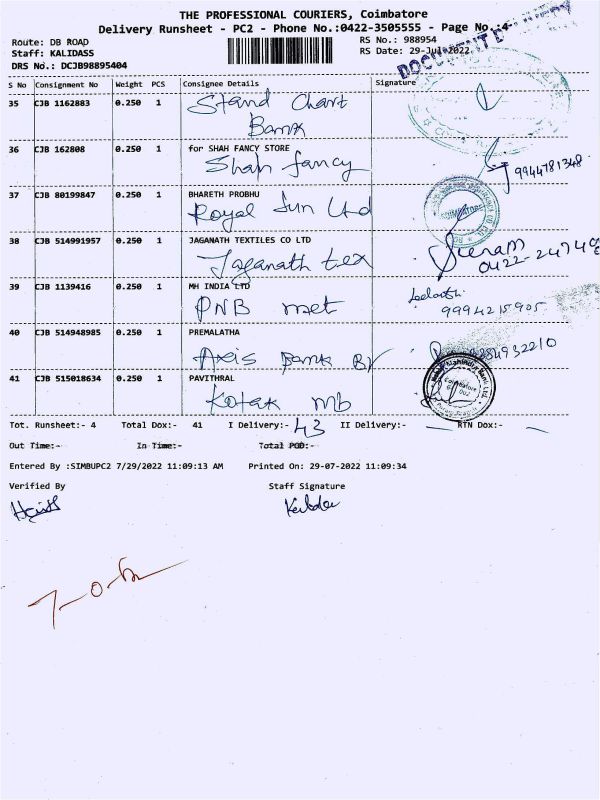 THE PROFESSIONAL COURIERS, Coimbatore
Delivery Runsheet - PC2 - Phone No.:0422-3505555 - Page No.:4
Route: DB ROAD RS No.: 988954
Staff: KALIDASS RS Date: 29-Jul-2022
DRS No.: DCJB98895404
DOCUMENT DELIVERY
S No Consignment No Weight PCS Consignee Details Signature
35 CJB 1162883 0.250 1 Stand Chart
Bank
36 CJB 162808 0.250 1 for SHAH FANCY STORE
Shah fancy 9944781348
37 CJB 80199847 0.250 1 BHARETH PROBHU
Royal Sun Ltd
COIMBATORE
38 CJB 514991957 0.250 1 JAGANATH TEXTILES CO LTD
Jaganath tex
39 CJB 1139416 0.250 1 MH INDIA LTD
PNB met 9994215905
40 CJB 514948985 0.250 1 PREMALATHA
Axis Bank Br
41 CJB 515018634 0.250 1 PAVITHRAL
Kotak mb
Kotak Mahindra Bank Ltd.
Coimbatore
Tot. Runsheet:- 4 Total Dox:- 41 I Delivery:- 43 II Delivery:- — RTN Dox:- —
Out Time:- In Time:- Total POD:-
Entered By :SIMBUPC2 7/29/2022 11:09:13 AM Printed On: 29-07-2022 11:09:34
Verified By Staff Signature